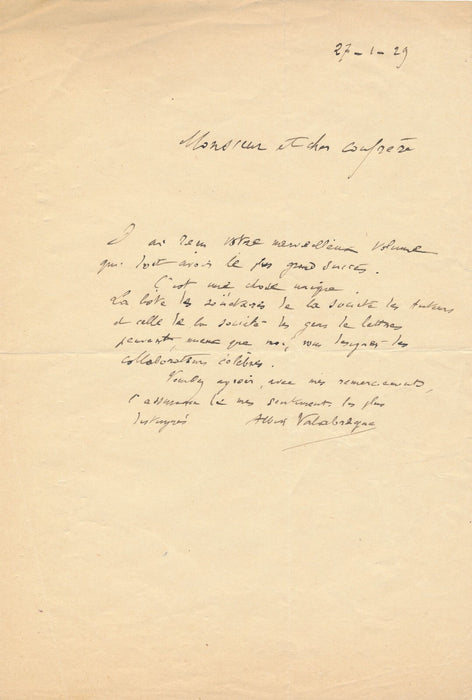 27-1-29
Monsieur et cher confrère
J'ai reçu votre merveilleux volume
qui doit avoir le plus grand succès.
C'est une chose unique.
La liste des sociétaires de la société des auteurs
et celle de la société des gens de lettres
peuvent, mieux que moi, vous désigner les
collaborateurs célèbres.
Veuillez agréer, avec mes remerciements,
l'assurance de mes sentiments les plus
distingués Albin Valabrègue